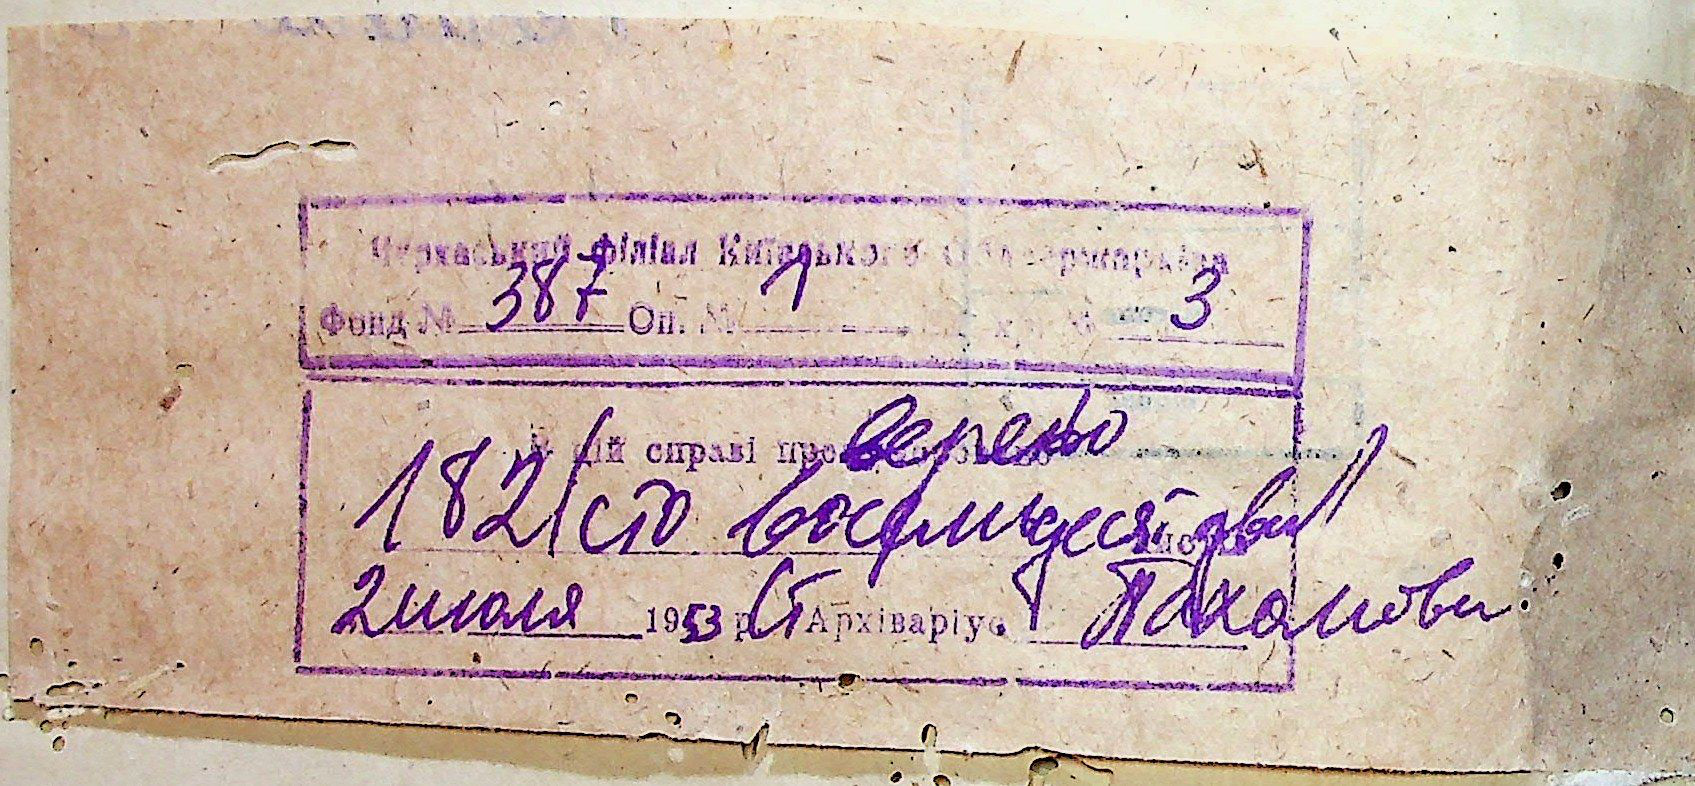 Черкаський філіал Київського Облдержархіва
Фонд № 387 Оп. № 1 № 3
В цій справі про верено
182 (сто восемьдесят два)
2 июля 1953 р. Ст Архіваріус Пахомова